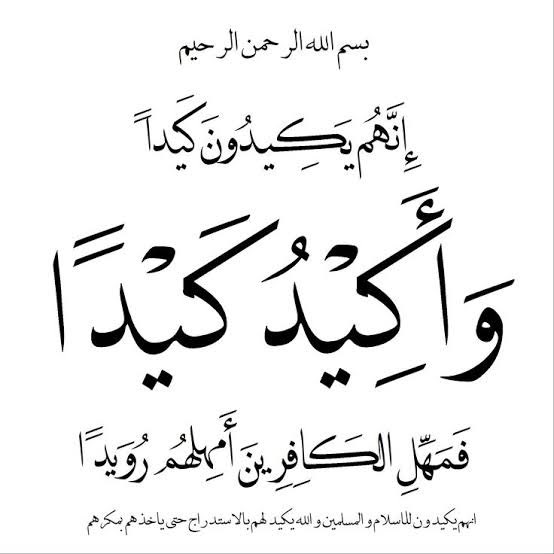 بسم الله الرحمن الرحيم
إِنَّهُم يَكِيدُونَ كَيداً
وَأَكِيْدُ كَيْدًا
فَمَهِّلِ الكَافِرِينَ أَمهِلهُم رُوَيدًا
انهم يكيدون للاسلام و المسلمين و الله يكيد لهم بالاستدراج حتى ياخذهم بمكرهم